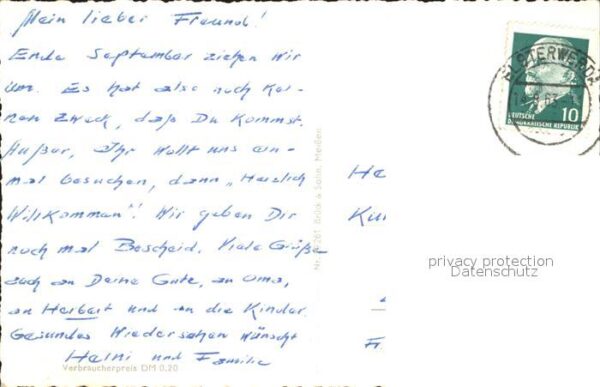 Mein lieber Freund!
Ende September ziehen wir
um. Es hat also noch kei-
nen Zweck, daß Du kommst.
Außer, Ihr wollt uns ein-
mal besuchen, dann "Herzlich
Willkommen"! Wir geben Dir
noch mal Bescheid. Viele Grüße
auch an Deine Gute, an Oma,
an Herbert und an die Kinder.
Gesundes Wiedersehen wünscht
Heini und Familie
Verbraucherpreis DM 0,20
Brück & Sohn, Meißen
ELSTERWERDA
10
DEUTSCHE
DEMOKRATISCHE REPUBLIK
He
privacy protection
Datenschutz